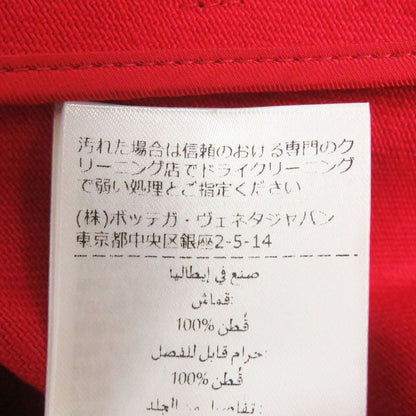 汚れた場合は信頼のおける専門のク
リーニング店でドライクリーニング
で弱い処理とご指定ください
(株)ボッテガ・ヴェネタジャパン
東京都中央区銀座2-5-14
صنع في إيطاليا:
قماش:
قُطن %100
حرام قابل للفصل:
قُطن %100
تفاصيل من الجلد